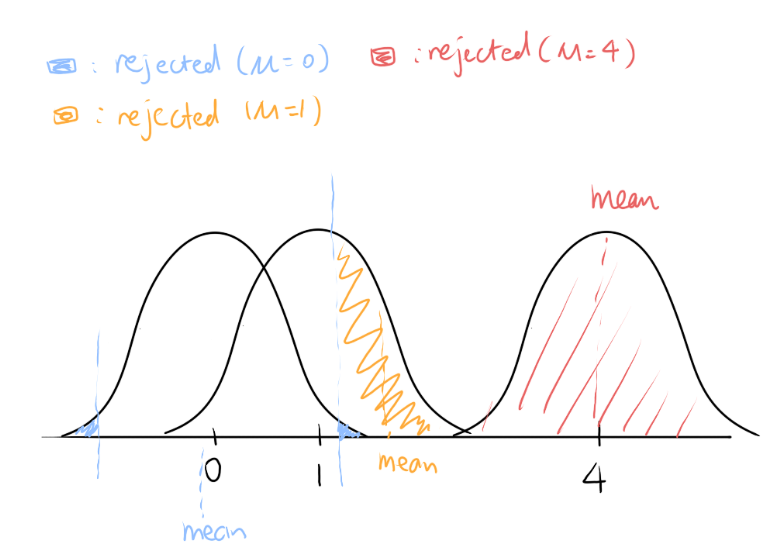 : rejected (μ=0)
: rejected (μ=4)
: rejected (μ=1)
mean
0
1
4
mean
mean